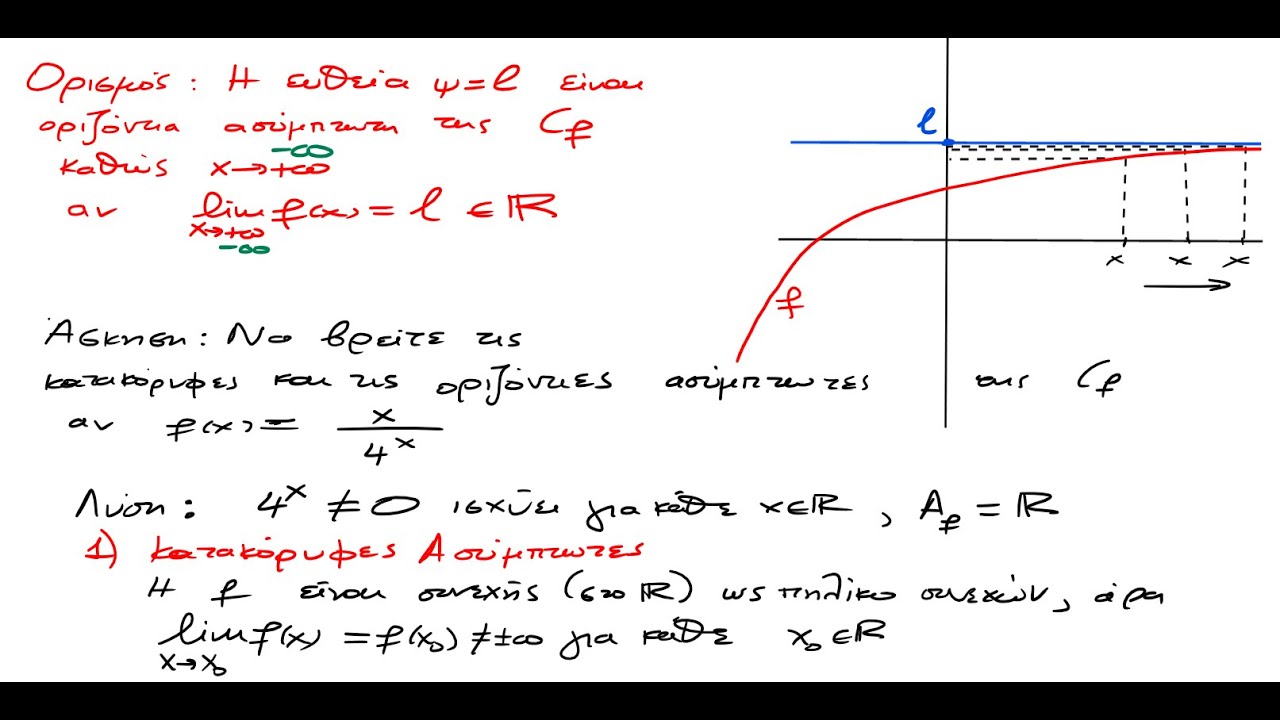 Ορισμός: Η ευθεία ψ=l είναι
οριζόντια ασύμπτωτη της Cf
-∞
καθώς x→+∞
αν lim f(x) = l ∈ ℝ
x→+∞
-∞
l
f
x x x
Άσκηση: Να βρείτε τις
κατακόρυφες και τις οριζόντιες ασύμπτωτες της Cf
αν f(x) = x
4^x
Λύση: 4^x ≠ 0 ισχύει για κάθε x∈ℝ, A_f = ℝ
1) κατακόρυφες Ασύμπτωτες
Η f είναι συνεχής (στο ℝ) ως πηλίκο συνεχών, άρα
lim f(x) = f(x₀) ≠ ±∞ για κάθε x₀∈ℝ
x→x₀